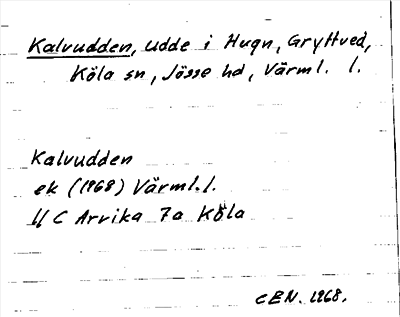 Kalvudden, udde i Hugn, Gryttved,
Köla sn, Jösse hd, Värml. l.
Kalvudden
ek (1968) Värml.l.
11 C Arvika 7a Köla
CEN. 1968.